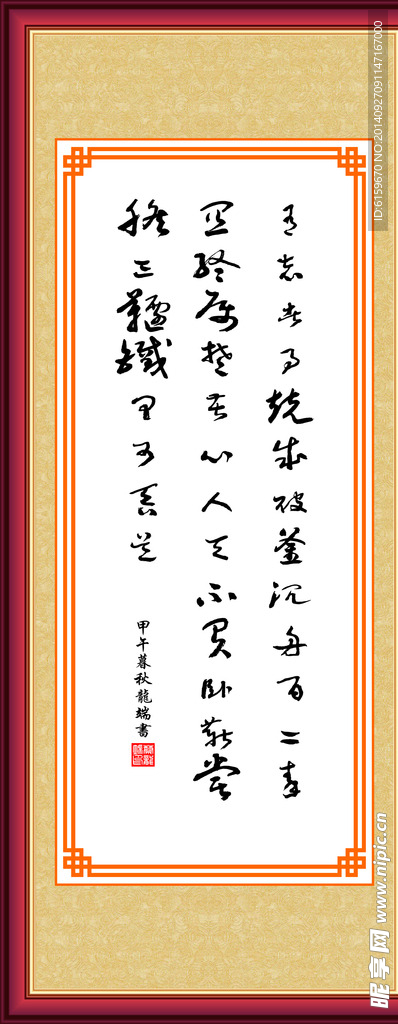 有志者事竟成破釜沉舟百二秦
関終屬楚苦心人天不負臥薪嘗
膽三韆甲可吞吳
甲午暮秋龍端書
ID:6159670 NO:20140927091147167000
昵享网 www.nipic.cn